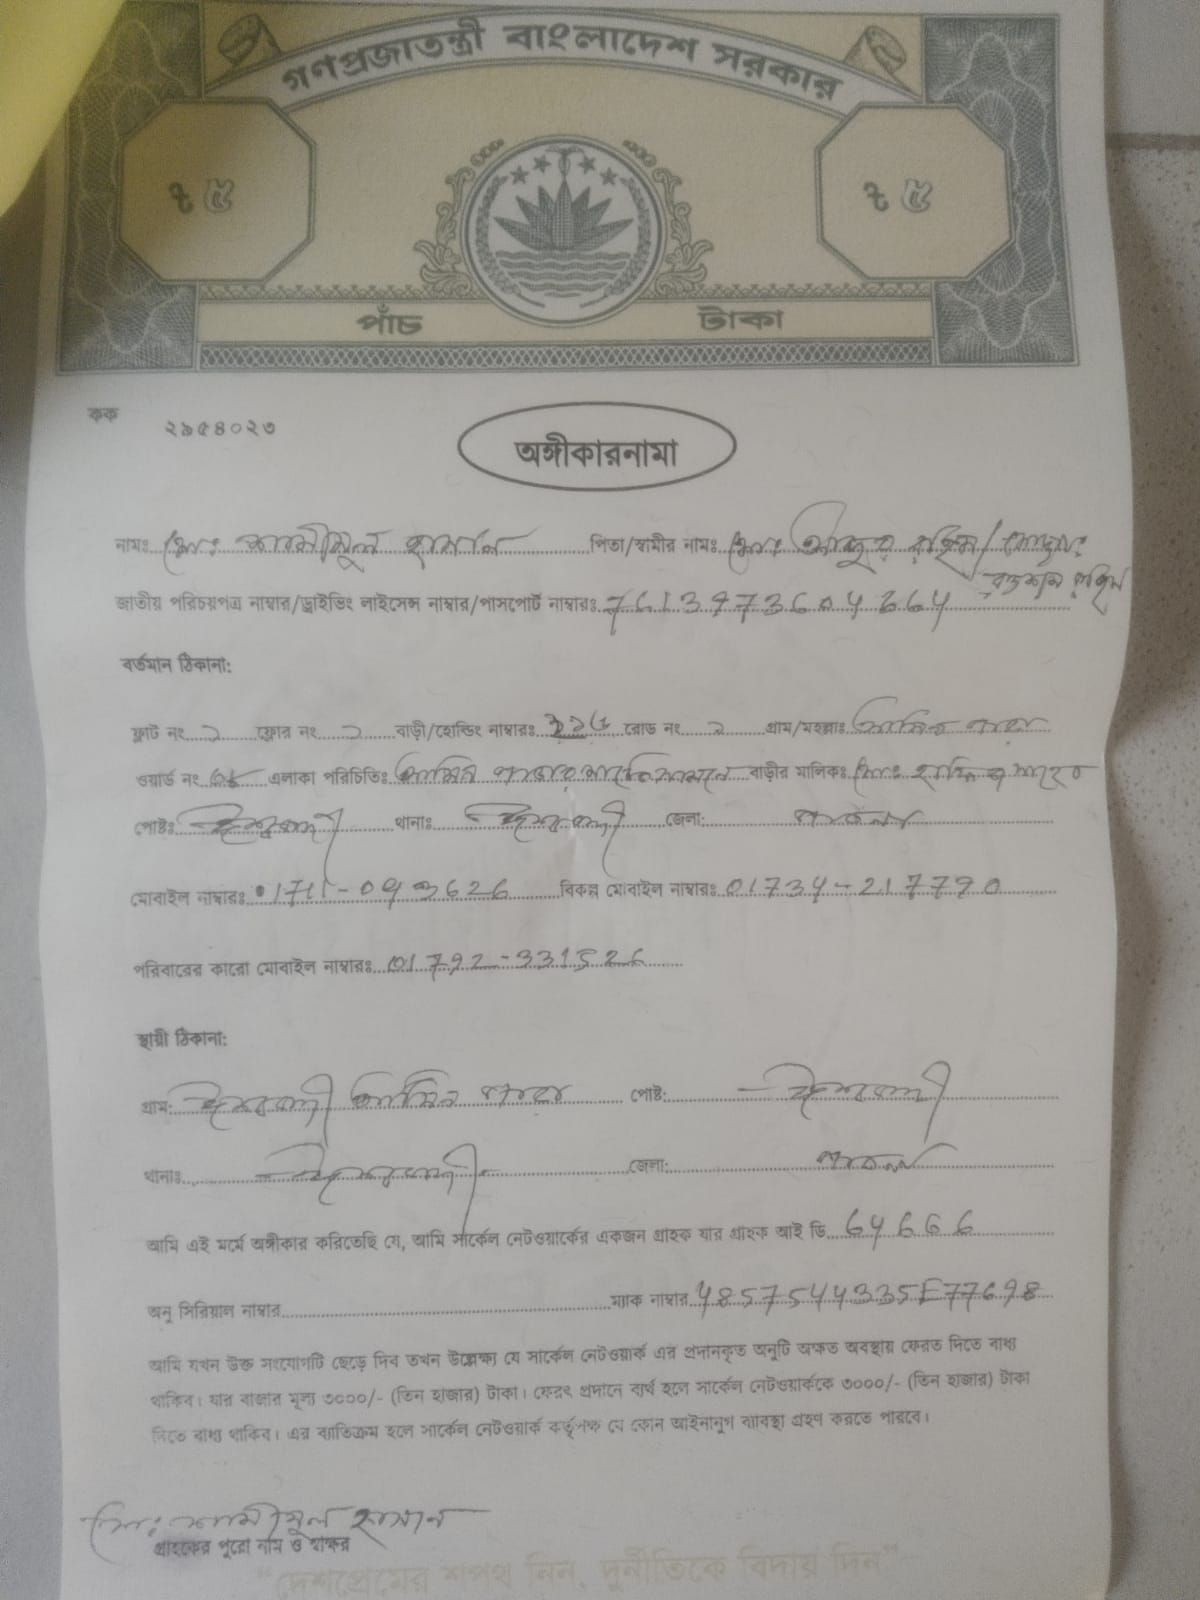 গণপ্রজাতন্ত্রী বাংলাদেশ সরকার
৳ ৫ ৳ ৫
পাঁচ টাকা
কক ২৯৫৪০২৩
অঙ্গীকারনামা
নামঃ মোঃ শামীমুল হাসান পিতা/স্বামীর নামঃ মোঃ আব্দুর রহিম/
জাতীয় পরিচয়পত্র নাম্বার/ড্রাইভিং লাইসেন্স নাম্বার/পাসপোর্ট নাম্বারঃ
বর্তমান ঠিকানা:
ফ্লাট নং ২ ফ্লোর নং ২ বাড়ী/হোল্ডিং নাম্বারঃ রোড নং ২ গ্রাম/মহল্লাঃ আমিন পাড়া
ওয়ার্ড নং এলাকা পরিচিতিঃ আমিন পাড়ার বাড়ীর মালিকঃ মোঃ
পোষ্টঃ ঈশ্বরদী থানাঃ ঈশ্বরদী জেলা: পাবনা
মোবাইল নাম্বারঃ বিকল্প মোবাইল নাম্বারঃ 01734-217790
পরিবারের কারো মোবাইল নাম্বারঃ 01792-331526
স্থায়ী ঠিকানা:
গ্রাম: ঈশ্বরদী আমিন পাড়া পোষ্ট: ঈশ্বরদী
থানাঃ ঈশ্বরদী জেলা: পাবনা
আমি এই মর্মে অঙ্গীকার করিতেছি যে, আমি সার্কেল নেটওয়ার্কের একজন গ্রাহক যার গ্রাহক আই ডি 64666
অনু সিরিয়াল নাম্বার ম্যাক নাম্বার 4857544335F77698
আমি যখন উক্ত সংযোগটি ছেড়ে দিব তখন উল্লেক্ষ্য যে সার্কেল নেটওয়ার্ক এর প্রদানকৃত অনুটি অক্ষত অবস্থায় ফেরত দিতে বাধ্য
থাকিব। যার বাজার মূল্য ৩০০০/- (তিন হাজার) টাকা। ফেরৎ প্রদানে ব্যর্থ হলে সার্কেল নেটওয়ার্ককে ৩০০০/- (তিন হাজার) টাকা
দিতে বাধ্য থাকিব। এর ব্যাতিক্রম হলে সার্কেল নেটওয়ার্ক কর্তৃপক্ষ যে কোন আইনানুগ ব্যাবস্থা গ্রহণ করতে পারবে।
মোঃ শামীমুল হাসান
গ্রাহকের পুরো নাম ও স্বাক্ষর
“দেশপ্রেমের শপথ নিন, দুর্নীতিকে বিদায় দিন”